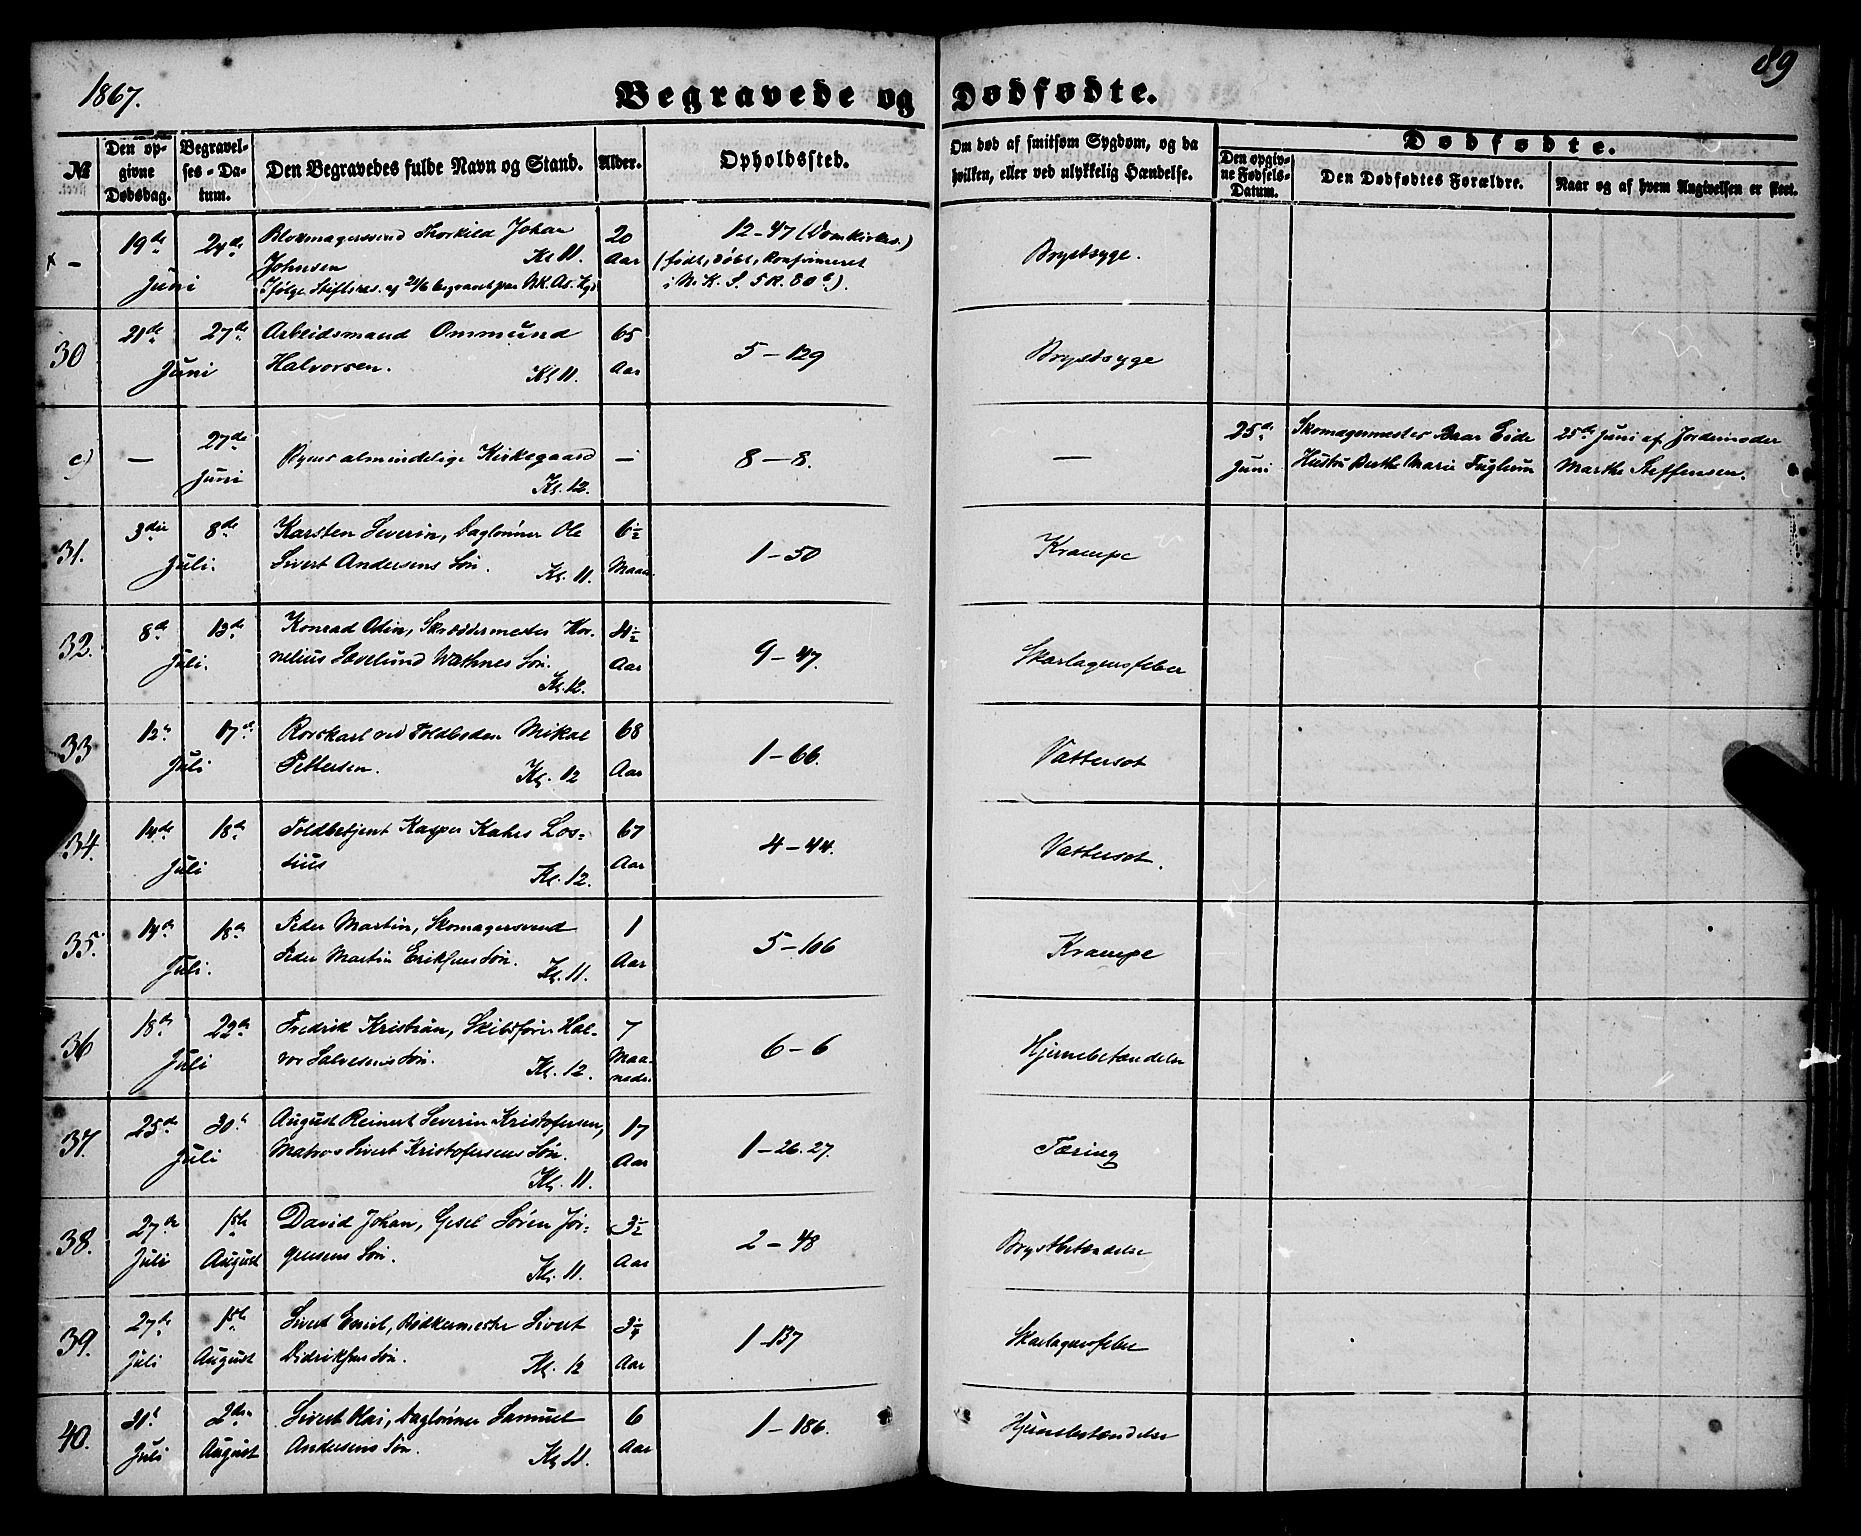 1867.
89
Begravede og Dødfødte.
№
Den opgivne Dødsdag.
Begravelses-Datum.
Den Begravedes fulde Navn og Stand.
Alder.
Opholdssted.
Om død af smitsom Sygdom, og da hvilken, eller ved ulykkelig Hændelse.
Dødfødte.
Den opgivne Fødsels-Datum.
Den Dødfødtes Forældre.
Naar og af hvem Angivelsen er skeet.
x – 19de 24de Juni
Blokmagersvend Thorkild Johan
Johnsen Kl 11.
20 Aar
12–47 (Domkirkes.)
(født, døbt, konfirmeret
Brystsyge.
30 21de 27de Juni
Arbeidsmand Ommund
Halvorsen. Kl 11.
65 Aar
5–129
Brystsyge
c) – 27de Juni
Byens almindelige Kirkegaard
Kl. 12.
–
8–8.
–
25de Juni
Skomagermester Brar Eide
Hustru Berthe Marie Fuglerin
25de Juni af Jordemoder
Marthe Steffensen.
31. 3die 8de Juli.
Karsten Severin, Daglønner Ole
Sivert Andersens Søn. Kl. 11.
6½ Maan.
1–50
Krampe
32. 8de 13de Juli.
Konrad Odin, Skræddermester Kor-
nelius Hævelund Wathnes Søn.
Kl. 12.
4½ Aar
9–47.
Skarlagensfeber
33 12te 17de Juli
Rorskarl ved Toldboden Mikal
Pettersen. Kl. 12
68 Aar
1–66.
Vattersot
34. 14de 18de Juli
Toldbetjent Kasper Kahrs Los-
sius Kl. 12.
67 Aar
4–44.
Vattersot.
35. 14de 18de Juli.
Peder Martin, Skomagersvend
Peder Martin Eriksens Søn. Kl. 11.
1 Aar
5–106
Krampe
36 18de 22de Juli
Fredrik Kristian, Skibsfører Hal-
vor Salvesens Søn. Kl. 12.
7 Maa-
neder
6–6
Hjernebetændelse
37. 25de 30te Juli
August Reinert Severin Kristofersen,
Matros Sivert Kristofersens Søn.
Kl. 11.
17 Aar
1–26.27.
Tæring
38. 27de Juli 1ste August
David Johan, Gesel Søren Jør-
gensens Søn. Kl. 11.
3½ Aar
2–48
Brystbetændelse
39. 27de Juli 1ste August
Sivert Emil, Bødkermester Sivert
Didriksens Søn. Kl. 12
3¼ Aar
1–137
Skarlagensfeber
40. 31te Juli 2den August
Sivert Kai, Daglønner Samuel
Andersens Søn. Kl 11.
6 Aar
1–186.
Hjernebetændelse